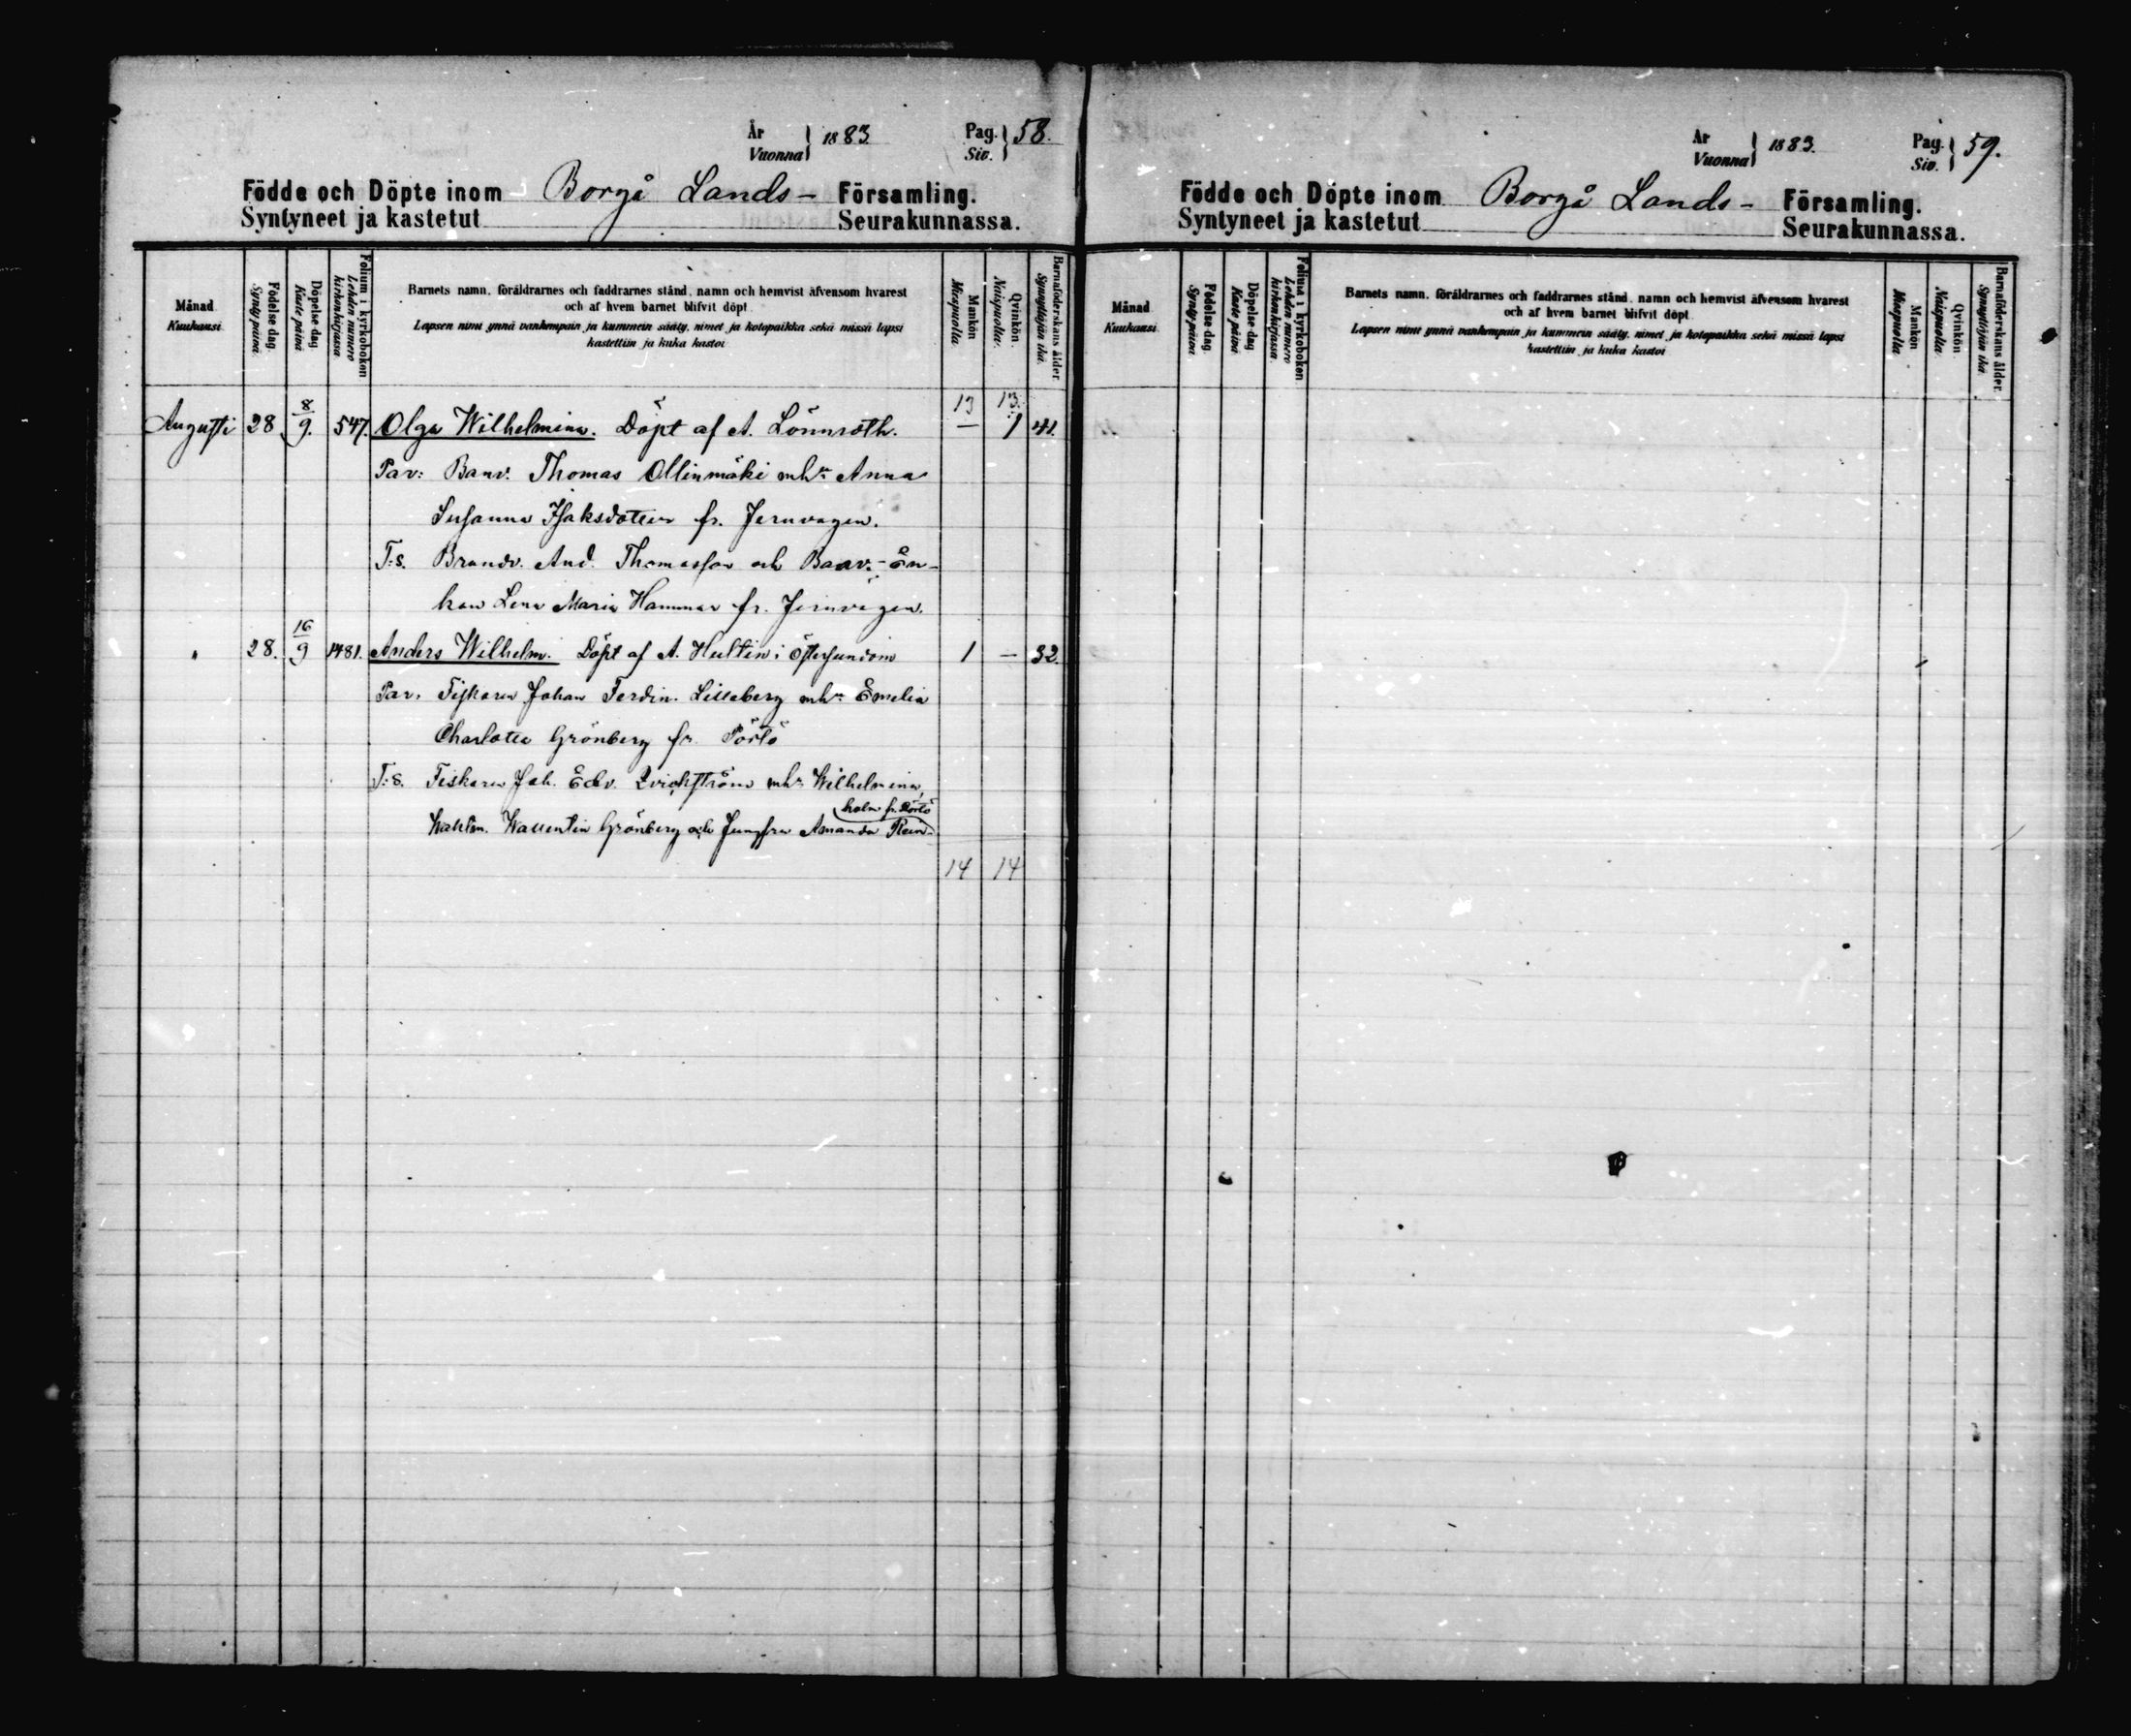 År Vuonna } 1883. Pag. Siv. } 58.
Födde och Döpte inom Borgå Lands- Församling.
Syntyneet ja kastetut Seurakunnassa.
Månad Kuukausi
Födelse dag. Synty päivä
Döpelse dag Kaste päivä
Folium i kyrkoboken Lehden numero kirkonkirjassa
Barnets namn, föräldrarnes och faddrarnes stånd, namn och hemvist äfvensom hvarest
och af hvem barnet blifvit döpt.
Lapsen nimi ynnä vanhempain ja kummein sääty, nimet ja kotopaikka sekä missä lapsi
kastettiin ja kuka kastoi
Mankön Miespuolta
Qvinkön Naispuolta.
Barnaföderskans ålder. Synnyttäjän ikä.
13 13.
Augusti 28 8/9. 547. Olga Wilhelmina. Döpt af A. Lönnroth. — 1 41.
Par: Banv. Thomas Ollinmäki mhr Anna
Susanna Isaksdotter fr. Jernvägen.
T:s. Brandv. And. Thomasson och Banv.-En-
kan Lena Maria Hammar fr. Jernvägen.
" 28. 16/9 1481. Anders Wilhelm. Döpt af A. Hultin i Östersundom 1 — 32.
Par. Fiskaren Johan Ferdin. Lilleberg mhr Emelia
Charlotta Grönberg fr. Pörtö
T:s. Fiskaren Joh. Edv. Qvickström mhr Wilhelmina,
holm fr. Pörtö
Wallentin Grönberg och Jungfru Amanda Rein-
14 14
År Vuonna } 1883. Pag. Siv. } 59.
Födde och Döpte inom Borgå Lands- Församling.
Syntyneet ja kastetut Seurakunnassa.
Månad Kuukausi
Födelse dag Synty päivä
Döpelse dag Kaste päivä
Folium i kyrkoboken Lehden numero kirkonkirjassa
Barnets namn, föräldrarnes och faddrarnes stånd, namn och hemvist äfvensom hvarest
och af hvem barnet blifvit döpt
Lapsen nimi ynnä vanhempain ja kummein sääty, nimet ja kotopaikka sekä missä lapsi
kastettiin ja kuka kastoi
Mankön Miespuolta
Qvinkön Naispuolta.
Barnaföderskans ålder. Synnyttäjän ikä.